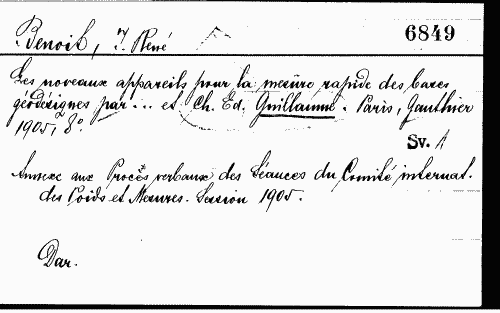 Benoit, J. René
6849
Les noveaux appareils pour la mesure rapide des bases
géodésignes par... et Ch. Ed. Guillaume. Paris, Gauthier
1905, 8°.
Sv. A
Annexe aux Procès verbaux des Séances du Comité internat.
des Poids et Mesures. Session 1905.
Dar.